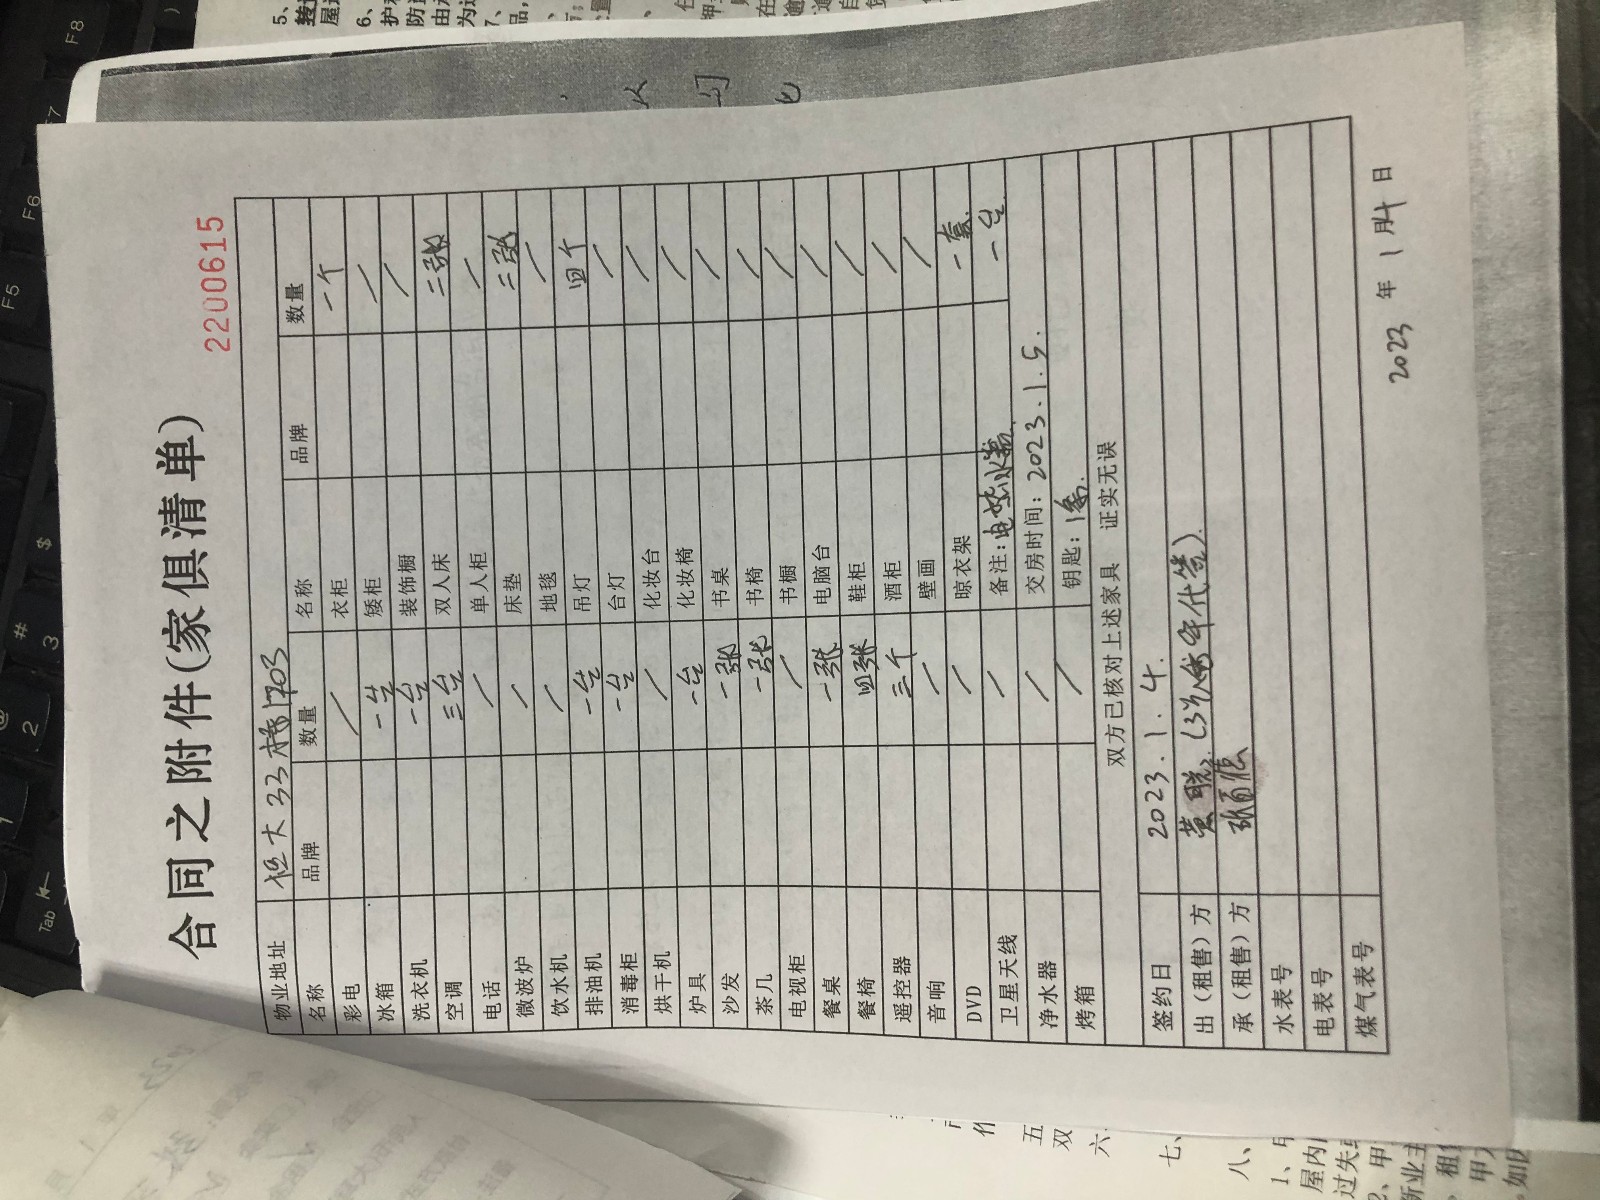 合同之附件(家俱清单)
2200615
物业地址 恒大33栋1703
名称 品牌 数量 名称 品牌 数量
彩电 / 衣柜 一个
冰箱 一台 矮柜 /
洗衣机 一台 装饰橱 /
空调 三台 双人床 三张
电话 / 单人柜 /
微波炉 / 床垫 三张
饮水机 / 地毯 /
排油机 一台 吊灯 四个
消毒柜 一台 台灯 /
烘干机 / 化妆台 /
炉具 一台 化妆椅 /
沙发 一张 书桌 /
茶几 一张 书椅 /
电视柜 / 书橱 /
餐桌 一张 电脑台 /
餐椅 四张 鞋柜 /
遥控器 三个 酒柜 /
音响 / 壁画 /
DVD / 晾衣架 一套
卫星天线 / 备注:电热水器 一台
净水器 / 交房时间:2023.1.5.
烤箱 / 钥匙:1条.
双方已核对上述家具 证实无误
签约日 2023.1.4.
出(租售)方 黄 代签)
承(租售)方 张
水表号
电表号
煤气表号
2023 年 1 月4 日
F8
F7
F6
F5
# 3
$
2
Tab